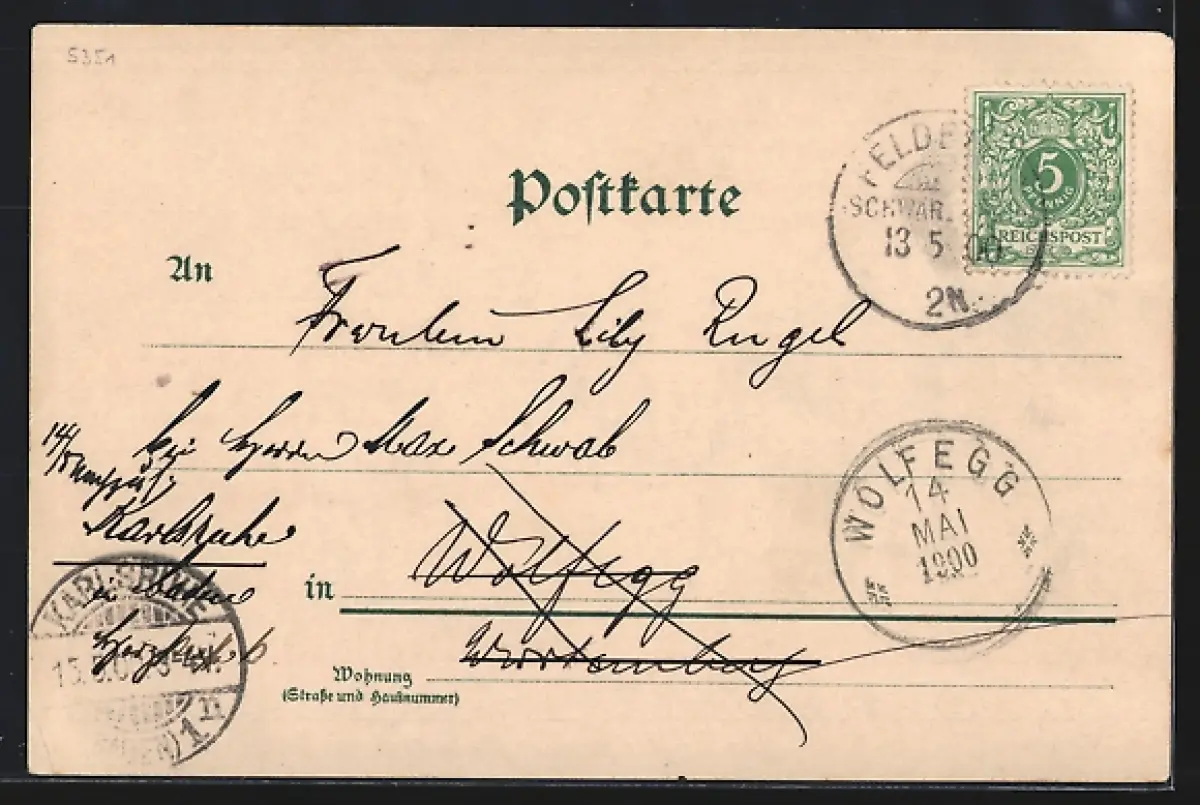 5351
Postkarte
FELDB
SCHWAR
13 5 00
2N.
5
PFENNIG
REICHSPOST
An
Fräulein Lily Rugel
bei Herrn Max Schwab
Karlsruhe
in Baden
in Wolfegg
Württemberg
WOLFEGG
14
MAI
1900
KARLSRUHE
15.5.0
1n
Wohnung
(Straße und Hausnummer)